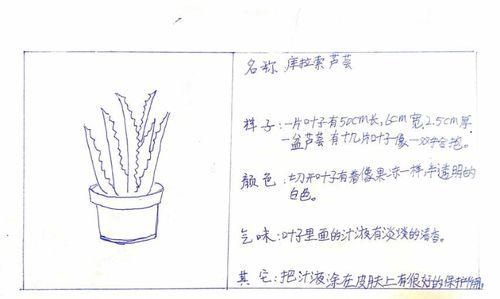 名称 库拉索芦荟
样子:一片叶子有50cm长,6cm宽,2.5cm厚.
一盆芦荟有十几片叶子像一双手合抱。
颜色:切开叶子有着像果冻一样,半透明的
白色。
气味:叶子里面的汁液有淡淡的清香。
其它:把汁液涂在皮肤上有很好的保护作用.